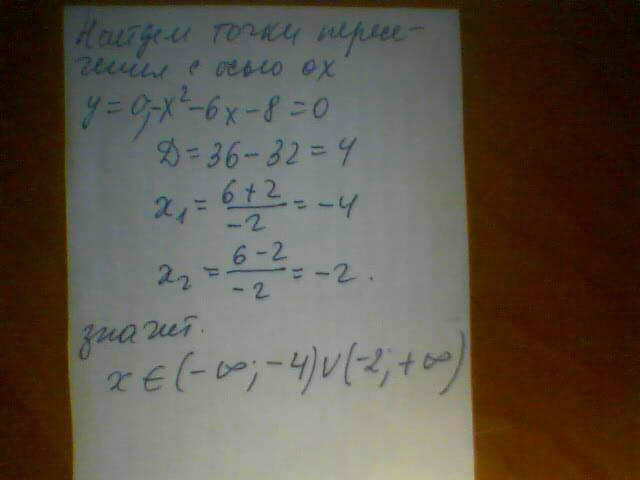 Найдем точки пересе-
чения с осью ох
y = 0; -x² - 6x - 8 = 0
D = 36 - 32 = 4
x₁ = (6 + 2)/(-2) = -4
x₂ = (6 - 2)/(-2) = -2.
значит.
x ∈ (-∞; -4) ∪ (-2; +∞)